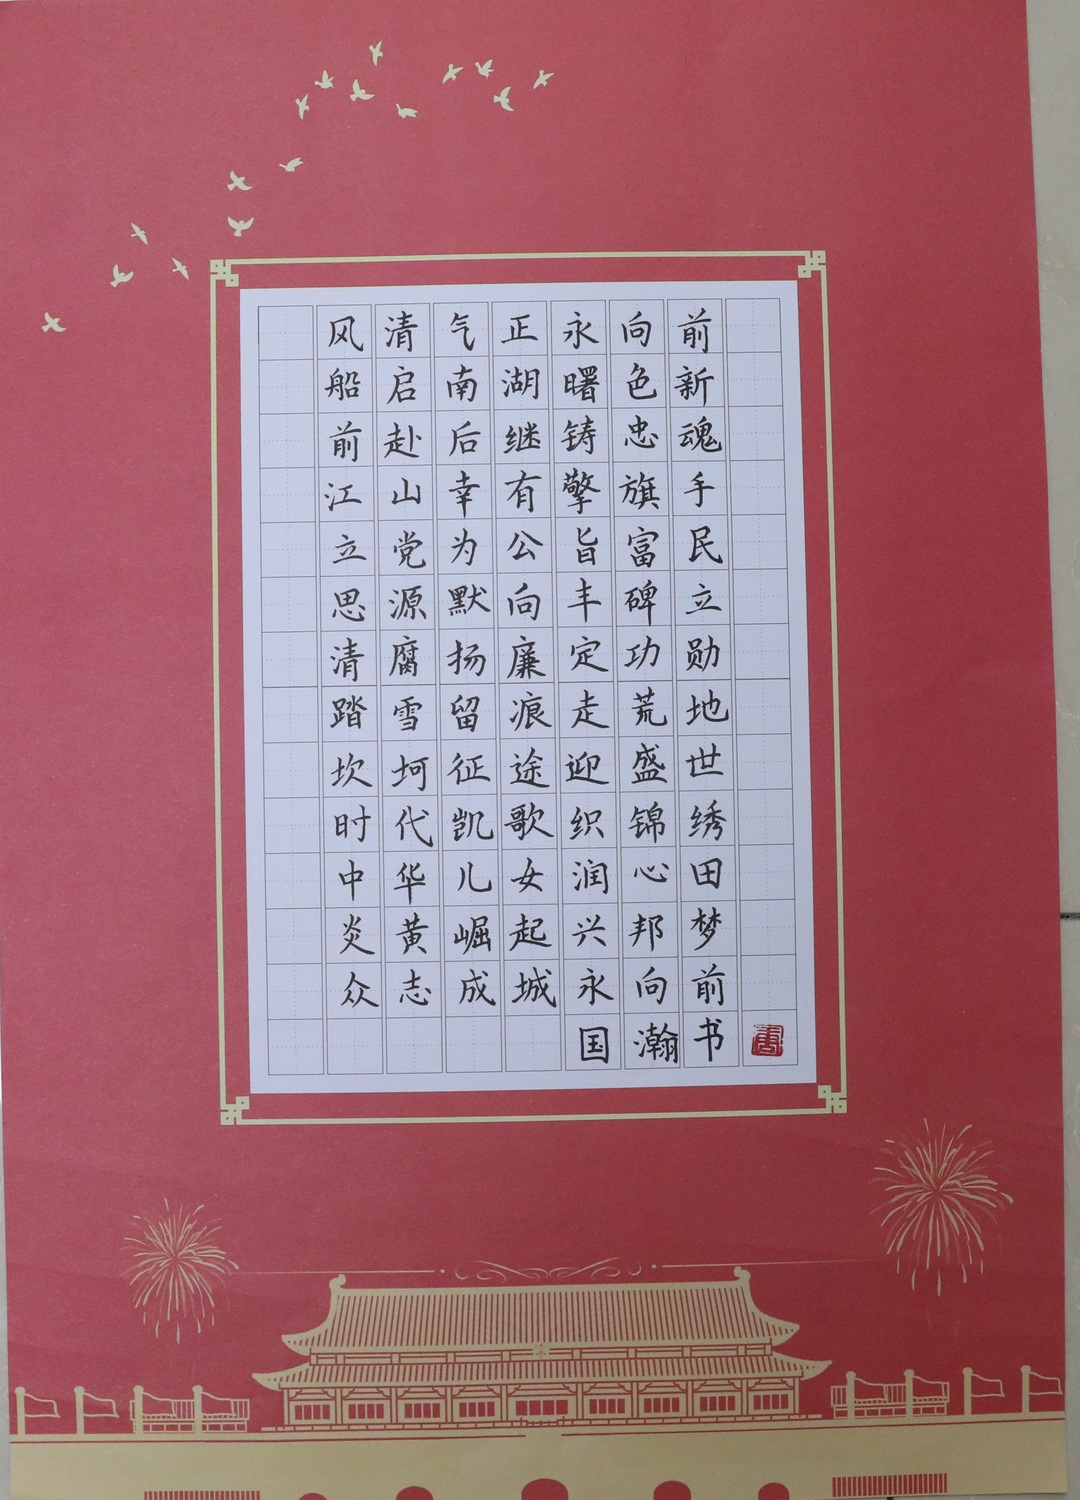 风清气正永向前
船启南湖曙色新
前赴后继铸忠魂
江山幸有擎旗手
立党为公旨富民
思源默向丰碑立
清腐扬廉定功勋
踏雪留痕走荒地
坎坷征途迎盛世
时代凯歌织锦绣
中华儿女润心田
炎黄崛起兴邦梦
众志成城永向前
国瀚书